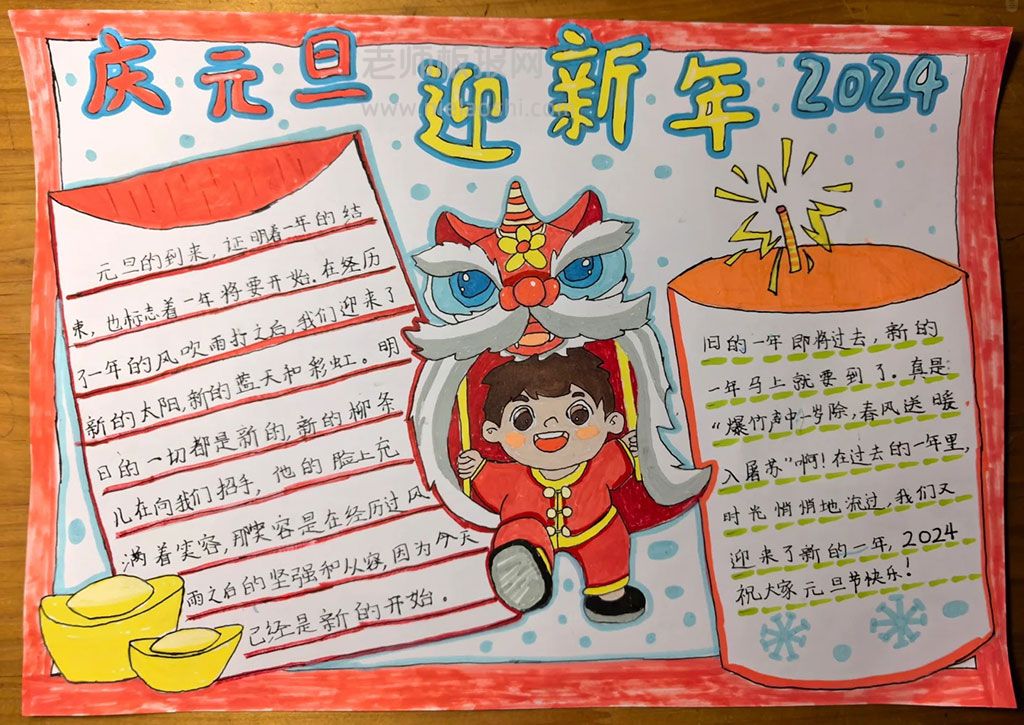 庆元旦 迎新年 2024
老师板报网
元旦的到来，证明着一年的结
束，也标志着一年将要开始。在经历
了一年的风吹雨打之白，我们迎来了
新的太阳，新的蓝天和彩虹。明
日的一切都是新的，新的柳条
儿在向我们招手，他的脸上充
满着笑容，那笑容是在经历过风
雨之白的坚强和从容，因为今天
已经是新的开始。
旧的一年即将过去，新的
一年马上就要到了。真是：
“爆竹声中一岁除，春风送暖
入屠苏”啊！在过去的一年里，
时光悄悄地流过，我们又
迎来了新的一年，2024
祝大家元旦节快乐！